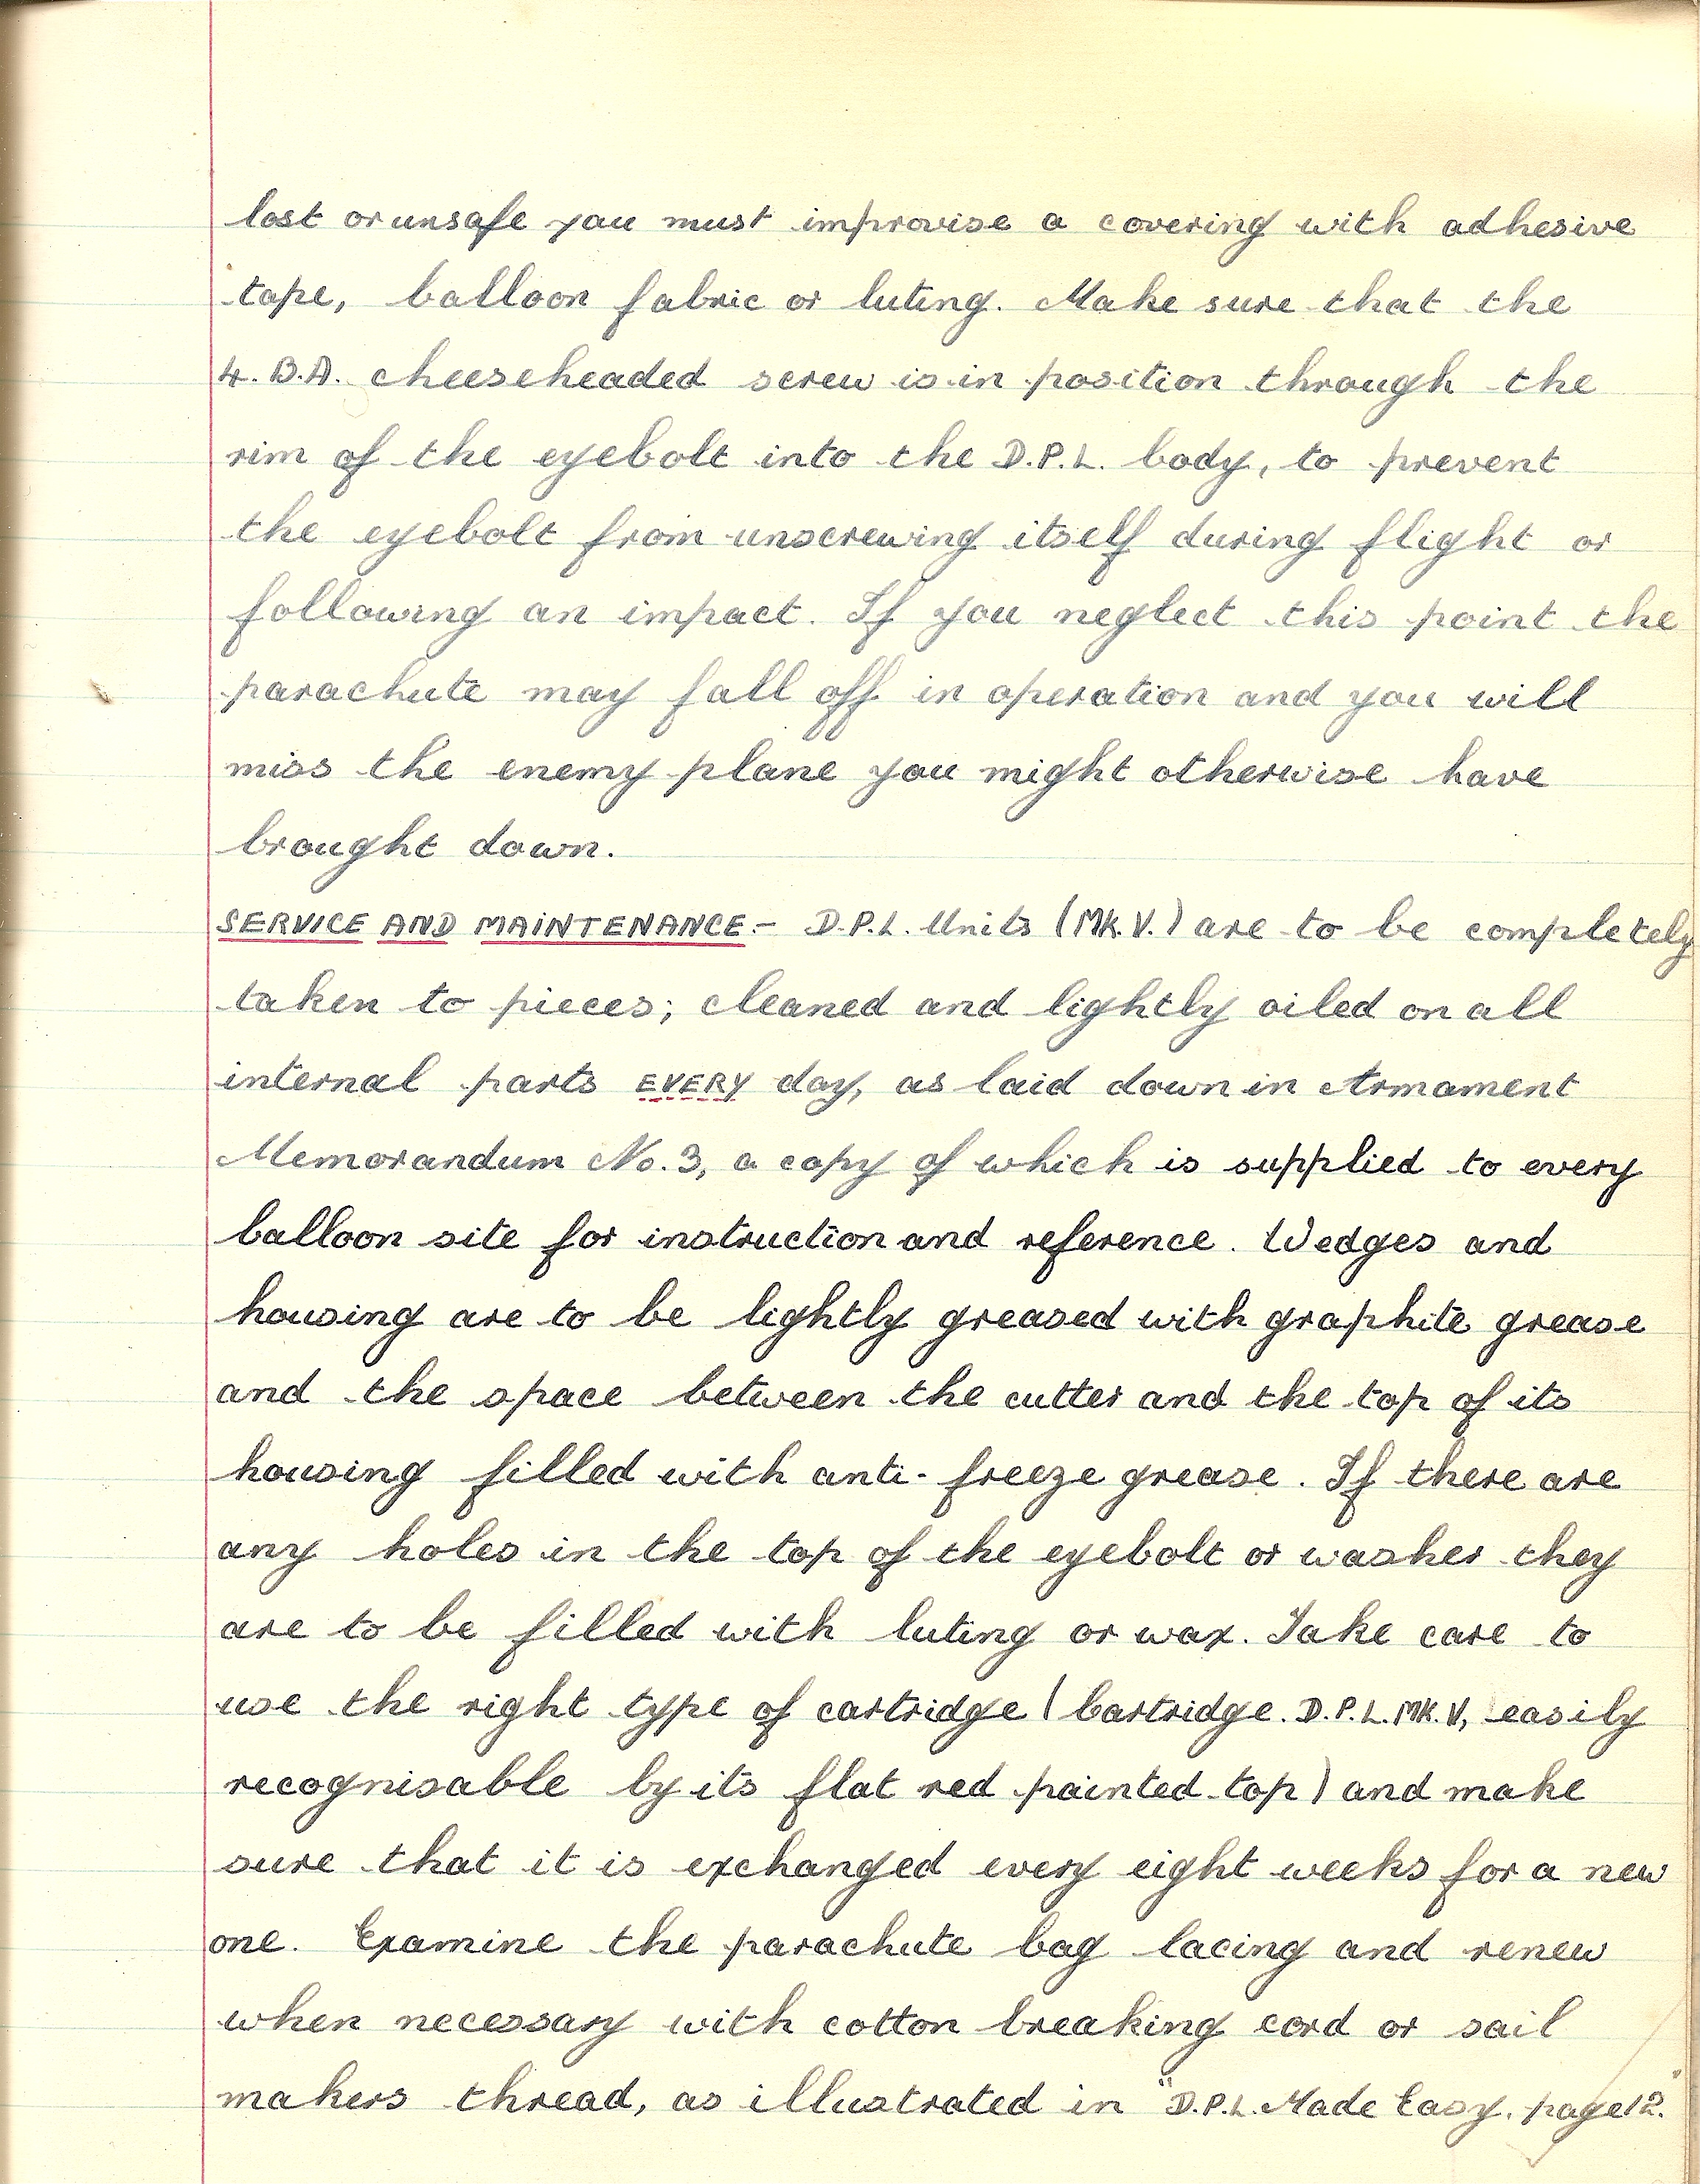 lost or unsafe you must improvise a covering with adhesive
tape, balloon fabric or luting. Make sure that the
4. B.A. cheeseheaded screw is in position through the
rim of the eyebolt into the D.P.L. body, to prevent
the eyebolt from unscrewing itself during flight or
following an impact. If you neglect this point the
parachute may fall off in operation and you will
miss the enemy plane you might otherwise have
brought down.
SERVICE AND MAINTENANCE.- D.P.L. Units (Mk. V.) are to be completely
taken to pieces; cleaned and lightly oiled on all
internal parts EVERY day, as laid down in Armament
Memorandum No. 3, a copy of which is supplied to every
balloon site for instruction and reference. Wedges and
housing are to be lightly greased with graphite grease
and the space between the cutter and the top of its
housing filled with anti-freeze grease. If there are
any holes in the top of the eyebolt or washer they
are to be filled with luting or wax. Take care to
use the right type of cartridge (Cartridge. D.P.L. Mk. V, easily
recognisable by its flat red painted top) and make
sure that it is exchanged every eight weeks for a new
one. Examine the parachute bag lacing and renew
when necessary with cotton breaking cord or sail
makers thread, as illustrated in "D.P.L. Made Easy. page 12."